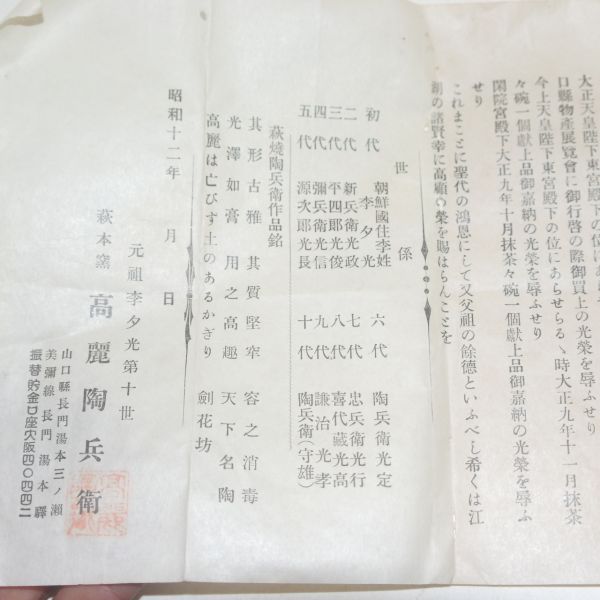 大正天皇陛下東宮殿下の位にあらせ
口縣物產展覽會に御行啓の際御買上の光榮を辱ふせり
今上天皇陛下東宮殿下の位にあらせらるゝ時大正九年十一月抹茶
々碗一個獻上品御嘉納の光榮を辱ふせり
閑院宮殿下大正九年十月抹茶々碗一個獻上品御嘉納の光榮を辱ふ
せり
これまことに聖代の鴻恩にして又父祖の餘德といふべし希くは江
湖の諸賢幸に高顧の榮を賜はらんことを
世係
初代 朝鮮國住李姓 李夕光
二代 新兵衛光政
三代 平四郎光俊
四代 彌兵衛光信
五代 源次郎光長
六代 陶兵衛光定
七代 忠兵衛光行
八代 喜代藏光高
九代 謙治光孝
十代 陶兵衛(守雄)
萩燒陶兵衛作品銘
其形古雅 其質堅牢 容之消毒
光澤如膏 用之高趣 天下名陶
高麗は亡びす土のあるかぎり 劍花坊
昭和十二年 月 日
元祖李夕光第十世
萩本窯 高麗陶兵衛
山口縣長門湯本三ノ瀬
美彌線長門湯本驛
振替貯金口座大阪四〇四四二